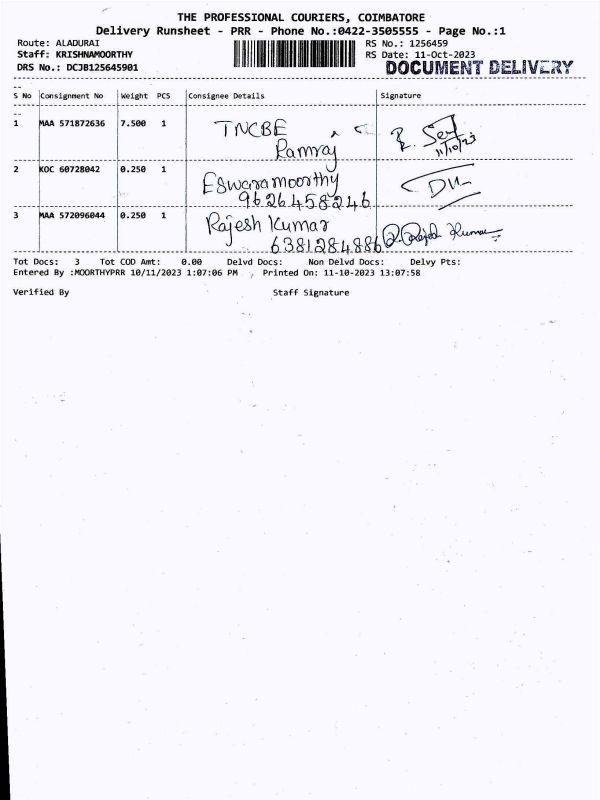 THE PROFESSIONAL COURIERS, COIMBATORE
Delivery Runsheet - PRR - Phone No.:0422-3505555 - Page No.:1
Route: ALADURAI
RS No.: 1256459
Staff: KRISHNAMOORTHY
RS Date: 11-Oct-2023
DRS No.: DCJB125645901
DOCUMENT DELIVERY
S No Consignment No Weight PCS Consignee Details Signature
1 MAA 571872636 7.500 1 TNCBE
Ramraj
11/10/23
2 KOC 60728042 0.250 1 Eswaramoorthy
9626458246
3 MAA 572096044 0.250 1 Rajesh Kumar
6381284886 R. Rajesh Kumar
Tot Docs: 3 Tot COD Amt: 0.00 Delvd Docs: Non Delvd Docs: Delvy Pts:
Entered By :MOORTHYPRR 10/11/2023 1:07:06 PM , Printed On: 11-10-2023 13:07:58
Verified By Staff Signature